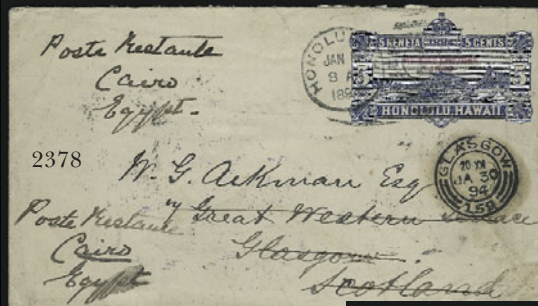 Poste Restante
Cairo
Egypt.
HONOLU
JAN
9 A
189
5 KENETA 5 CENTS
HONOLULU, HAWAII
2378
W. G. Aikman Esq
Great Western Terrace
Glasgow
Scotland
GLASGOW
JA 30
94
159
Poste Restante
Cairo
Egypt